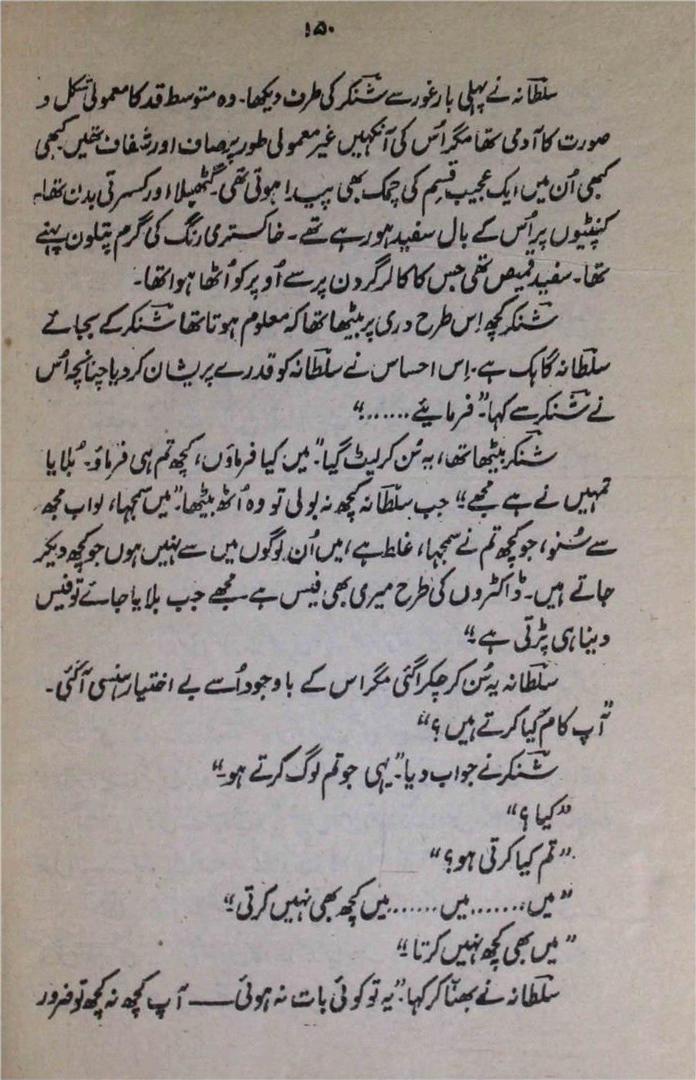 ۱۵۰
سلطانہ نے پہلی بار غور سے شنکر کی طرف دیکھا۔ وہ متوسط قد کا معمولی شکل و
صورت کا آدمی تھا مگر اُس کی آنکھیں غیر معمولی طور پر صاف اور شفاف تھیں۔ کبھی
کبھی اُن میں ایک عجیب قسم کی چمک بھی پیدا ہوتی تھی۔ گٹھیلا اور کسرتی بدن تھا۔
کنپٹیوں پر اُس کے بال سفید ہو رہے تھے۔ خاکستری رنگ کی گرم پتلون پہنے
تھا۔ سفید قمیص تھی جس کا کالر گردن پر سے اُوپر کو اُٹھا ہوا تھا۔
شنکر کچھ اِس طرح دری پر بیٹھا تھا کہ معلوم ہوتا تھا شنکر کے بجائے
سلطانہ گاہک ہے۔ اِس احساس نے سلطانہ کو قدرے پریشان کر دیا چنانچہ اُس
نے شنکر سے کہا۔ ”فرمایئے......“
شنکر بیٹھا تھا، یہ سُن کر لیٹ گیا۔ ”میں کیا فرماؤں، کچھ تم ہی فرماؤ۔ بُلایا
تمہیں نے ہے مجھے۔“ جب سلطانہ کچھ نہ بولی تو وہ اُٹھ بیٹھا۔ ”میں سمجھا، لو اب مجھ
سے سُنو، جو کچھ تم نے سمجھا، غلط ہے، میں اُن لوگوں میں سے نہیں ہوں جو کچھ دیکر
جاتے ہیں۔ ڈاکٹروں کی طرح میری بھی فیس ہے۔ مجھے جب بلایا جائے تو فیس
دینا ہی پڑتی ہے۔“
سلطانہ یہ سُن کر چکرا گئی مگر اس کے باوجود اُسے بے اختیار ہنسی آ گئی۔
”آپ کام کیا کرتے ہیں؟“
شنکر نے جواب دیا۔ ”یہی جو تم لوگ کرتے ہو۔“
”کیا؟“
”تم کیا کرتی ہو؟“
”میں....... میں...... میں کچھ بھی نہیں کرتی۔“
”میں بھی کچھ نہیں کرتا۔“
سلطانہ نے بھنّا کر کہا۔ ”یہ تو کوئی بات نہ ہوئی —— آپ کچھ نہ کچھ تو ضرور